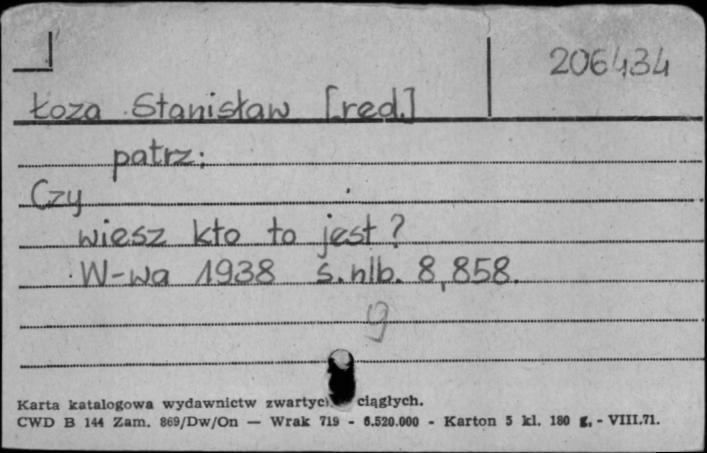 206434
Łoza Stanisław [red.]
patrz:
Czy
wiesz kto to jest?
W-wa 1938 s. nlb. 8, 858.
g
Karta katalogowa wydawnictw ciągłych.
CWD B 144 Zam. 869/Dw/On — Wrak 719 - 6.520.000 - Karton 5 kl. 180 g. - VIII.71.